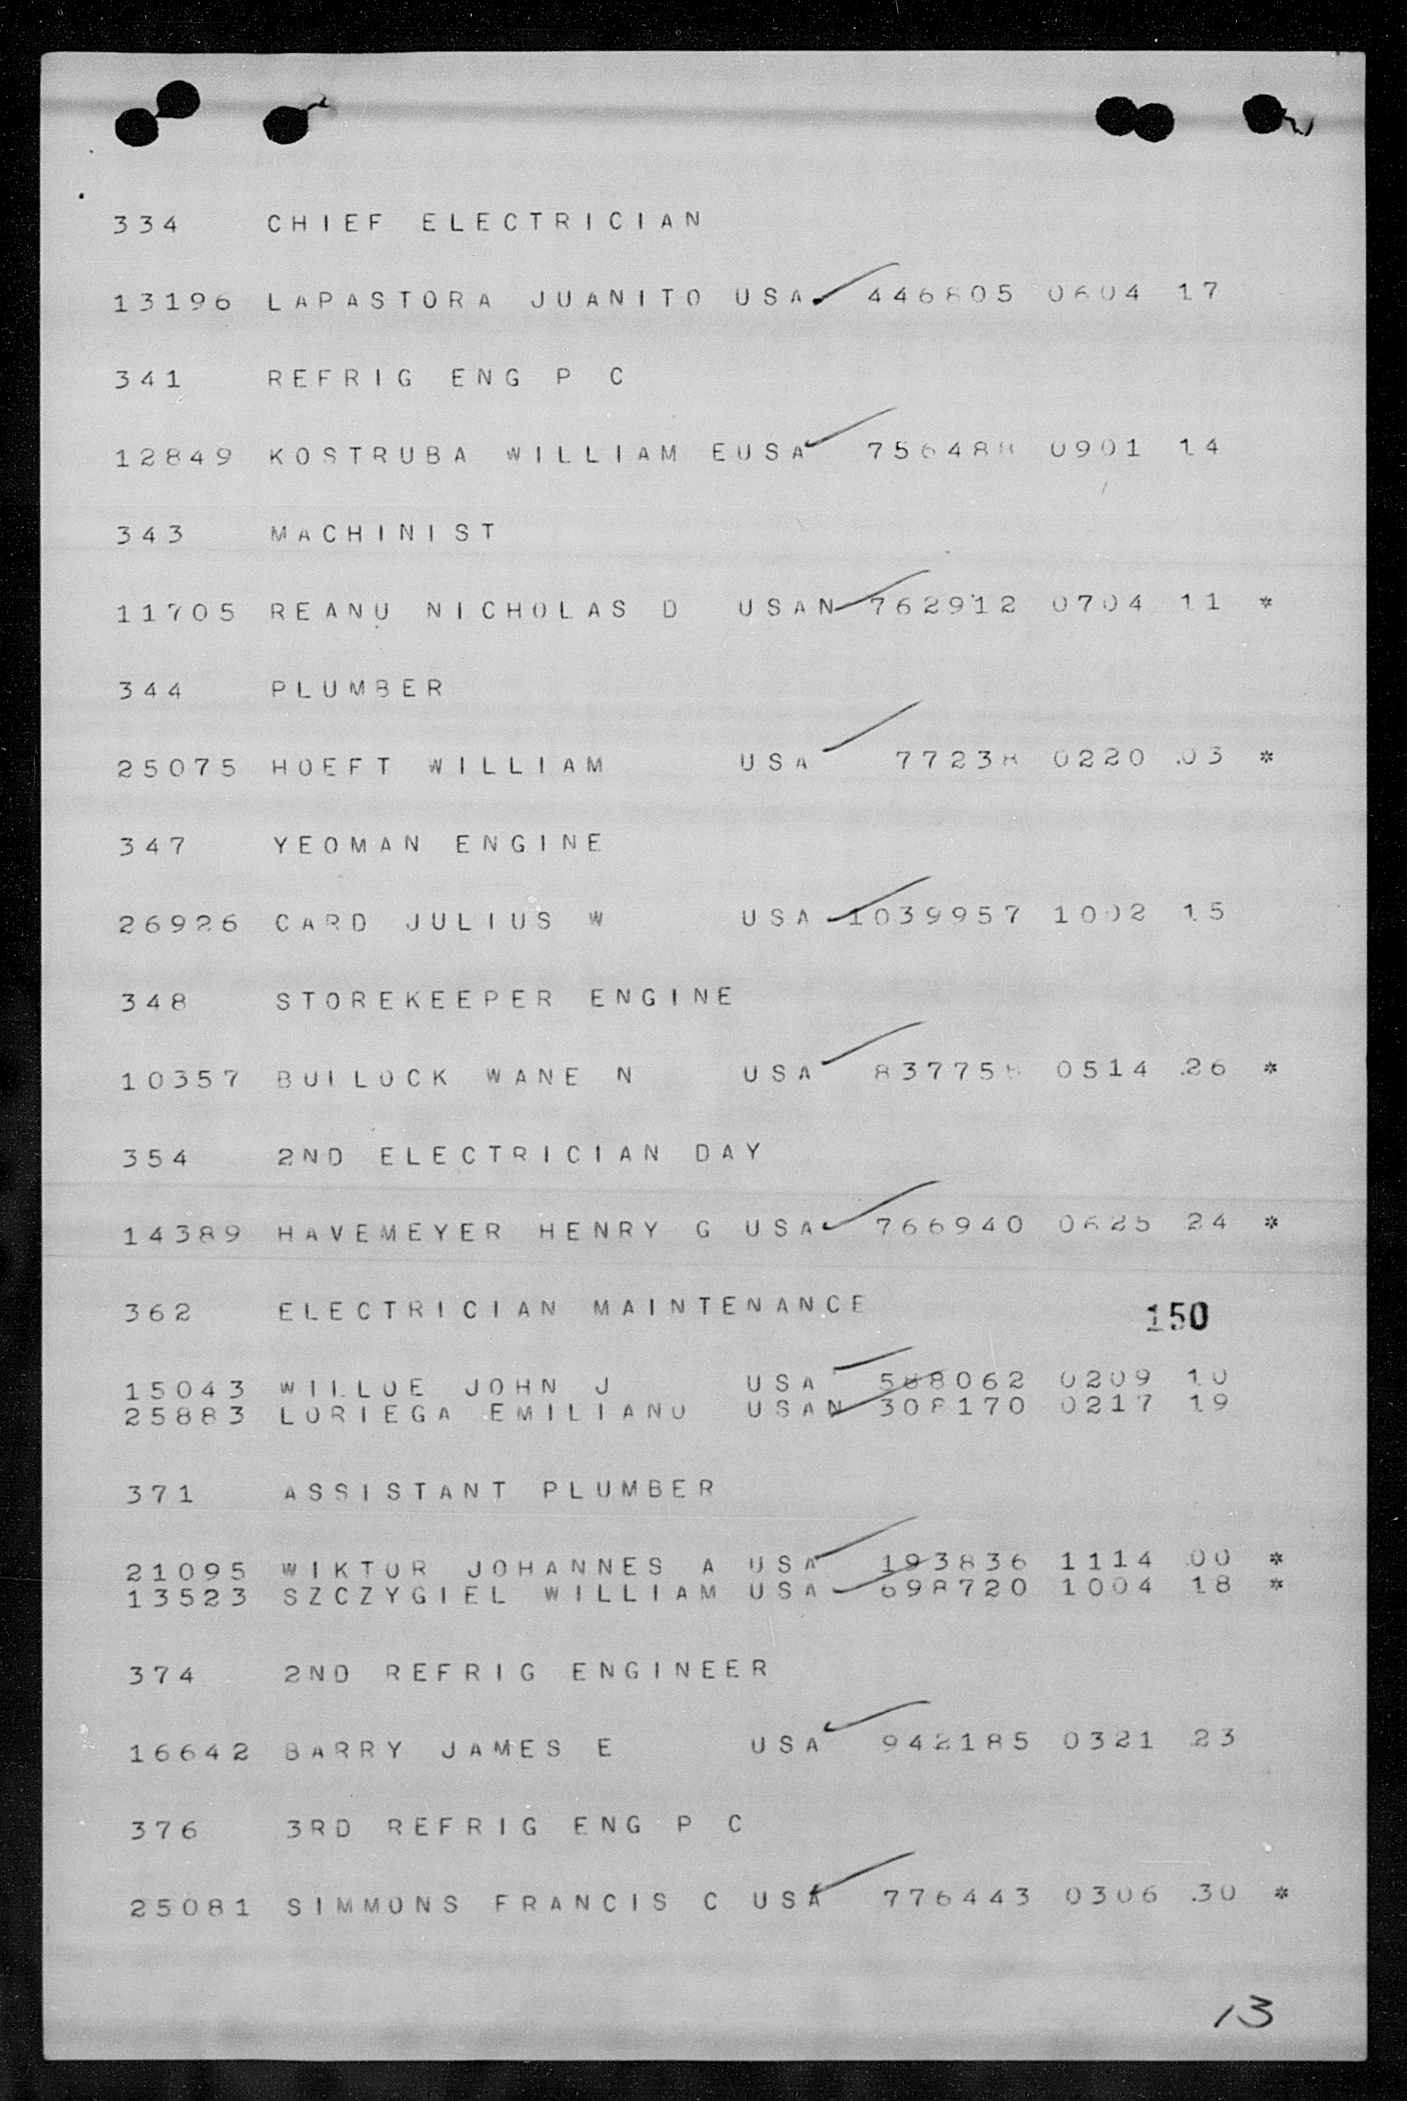 334 CHIEF ELECTRICIAN
13196 LAPASTORA JUANITO USA 446805 0604 17
341 REFRIG ENG P C
12849 KOSTRUBA WILLIAM EUSA 756488 0901 14
343 MACHINIST
11705 REANU NICHOLAS D USAN 762912 0704 11 *
344 PLUMBER
25075 HOEFT WILLIAM USA 77238 0220 03 *
347 YEOMAN ENGINE
26926 CARD JULIUS W USA 1039957 1002 15
348 STOREKEEPER ENGINE
10357 BULLOCK WANE N USA 837758 0514 26 *
354 2ND ELECTRICIAN DAY
14389 HAVEMEYER HENRY G USA 766940 0625 24 *
362 ELECTRICIAN MAINTENANCE
150
15043 WILLOE JOHN J USA 568062 0209 10
25883 LORIEGA EMILIANO USAN 308170 0217 19
371 ASSISTANT PLUMBER
21095 WIKTOR JOHANNES A USA 193836 1114 00 *
13523 SZCZYGIEL WILLIAM USA 698720 1004 18 *
374 2ND REFRIG ENGINEER
16642 BARRY JAMES E USA 942185 0321 23
376 3RD REFRIG ENG P C
25081 SIMMONS FRANCIS C USA 776443 0306 30 *
13